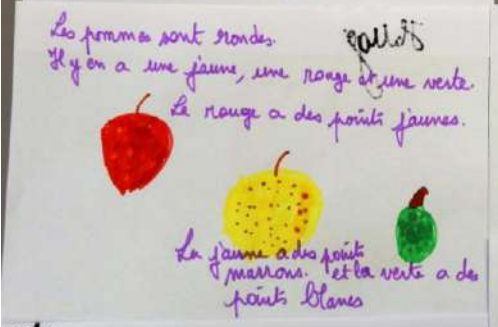 Les pommes sont rondes.
Il y en a une jaune, une rouge et une verte.
La rouge a des points jaunes.
La jaune a des points
marrons. et la verte a des
points blancs